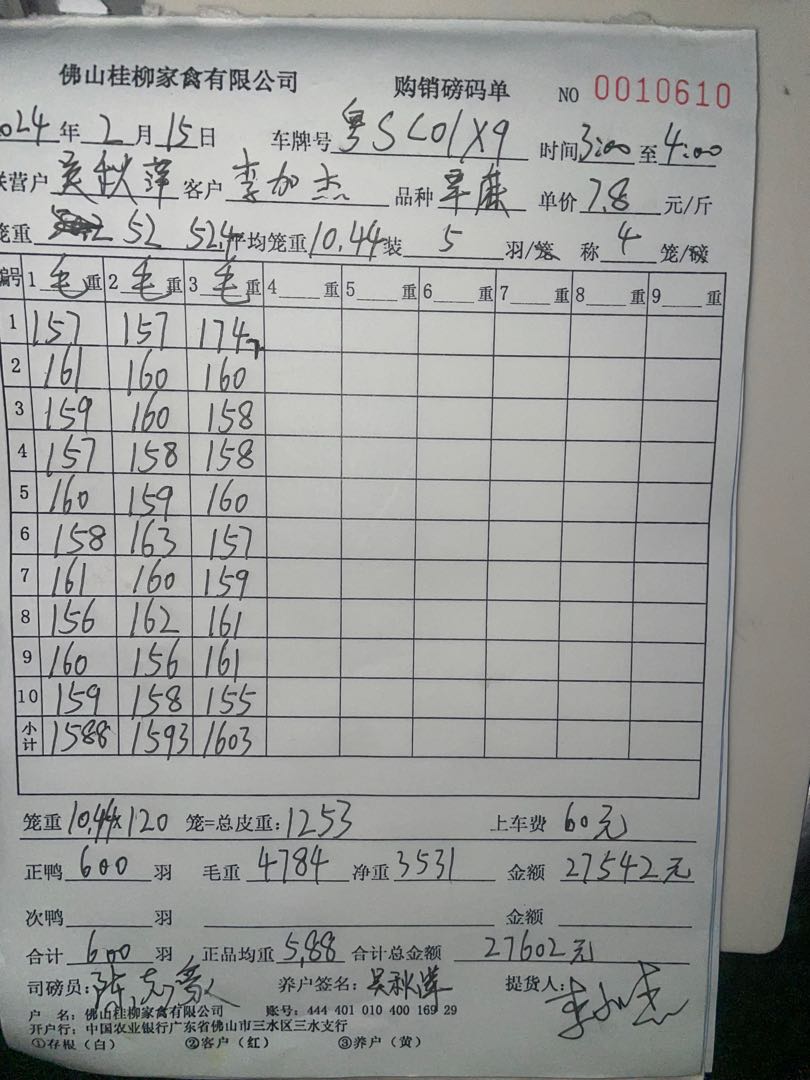 佛山桂柳家禽有限公司 购销磅码单 NO 0010610
024年2月15日 车牌号粤SC01X9 时间3:00至4:00
联营户吴秋萍客户李加杰 品种旱麻 单价7.8元/斤
笼重 52 52.4 平均笼重10.44装5羽/笼 称4笼/磅
编号 1毛重 2毛重 3毛重 4重 5重 6重 7重 8重 9重
1 157 157 174
2 161 160 160
3 159 160 158
4 157 158 158
5 160 159 160
6 158 163 157
7 161 160 159
8 156 162 161
9 160 156 161
10 159 158 155
小计 1588 1593 1603
笼重10.44×120笼=总皮重:1253 上车费60元
正鸭600羽 毛重4784净重3531 金额27542元
次鸭 羽 金额
合计600羽 正品均重5.88合计总金额27602元
司磅员: 养户签名:吴秋萍 提货人:李加杰
户 名:佛山桂柳家禽有限公司 账号:444 401 010 400 169 29
开户行:中国农业银行广东省佛山市三水区三水支行
①存根(白) ②客户(红) ③养户(黄)